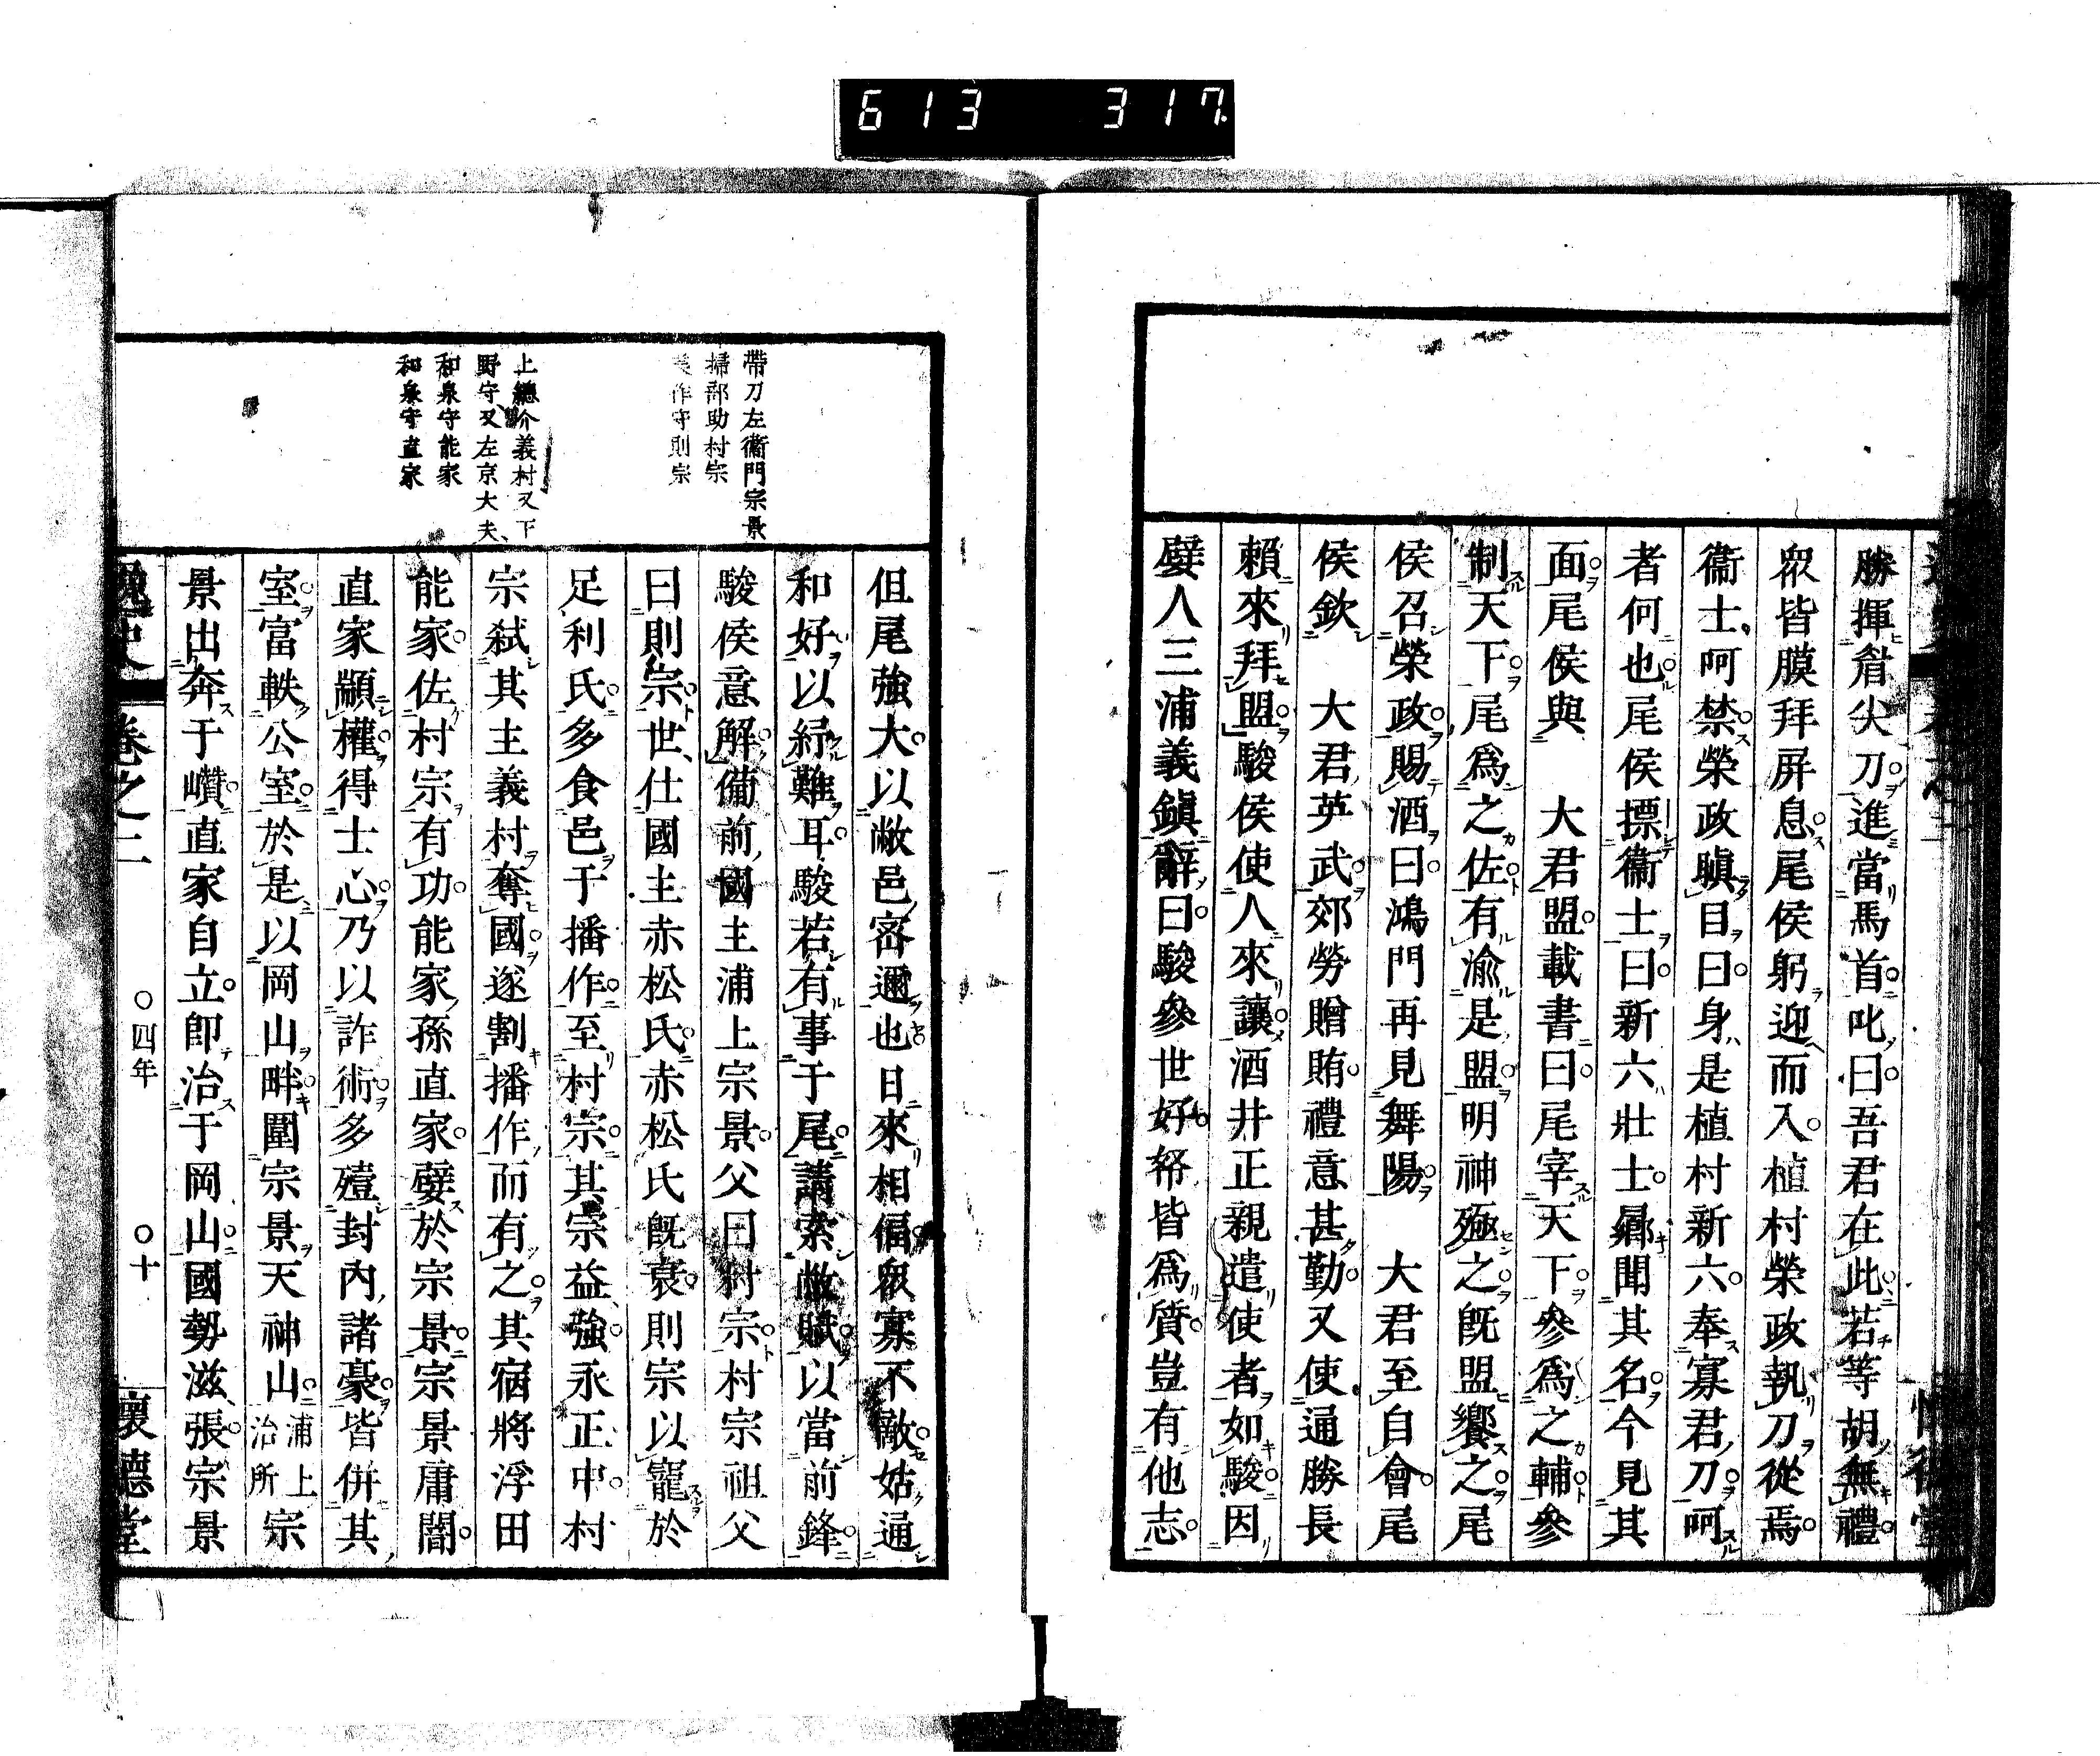 613 317
勝揮眉尖刀進當馬首叱曰吾君在此若等胡無禮
衆皆膜拜屏息尾侯躬迎而入植村榮政執刀從焉
衞士呵禁榮政瞋目曰身是植村新六奉寡君刀呵
者何也尾侯摽衞士曰新六壯士曩聞其名今見其
面尾侯與　大君盟載書曰尾宰天下參爲之輔參
制天下尾爲之佐有渝是盟明神殛之旣盟饗之尾
侯召榮政賜酒曰鴻門再見舞陽　大君至自會尾
侯欽　大君英武郊勞贈賄禮意甚勤又使通勝長
賴來拜盟駿侯使人來讓酒井正親遣使者如駿因
嬖人三浦義鎭辭曰駿參世好帑皆爲質豈有他志
帶刀左衞門宗景
掃部助村宗
美作守則宗
上總介義村又下
野守又左京大夫
和泉守能家
和泉守直家
但尾強大以敝邑密邇也日來相偪衆寡不敵姑通
和好以紓難耳駿若有事于尾請索敝賦以當前鋒
駿侯意解備前國主浦上宗景父曰村宗村宗祖父
曰則宗世仕國主赤松氏赤松氏旣衰則宗以寵於
足利氏多食邑于播作至村宗其宗益強永正中村
宗弑其主義村奪國遂割播作而有之其宿將浮田
能家佐村宗有功能家孫直家嬖於宗景宗景庸闇
直家顓權得士心乃以詐術多殪封內諸豪皆併其
室富軼公室於是以岡山畔圍宗景天神山浦上宗
治所
景出奔于巑直家自立卽治于岡山國勢滋張宗景
逸史 卷之二 〇四年 〇十 懷德堂